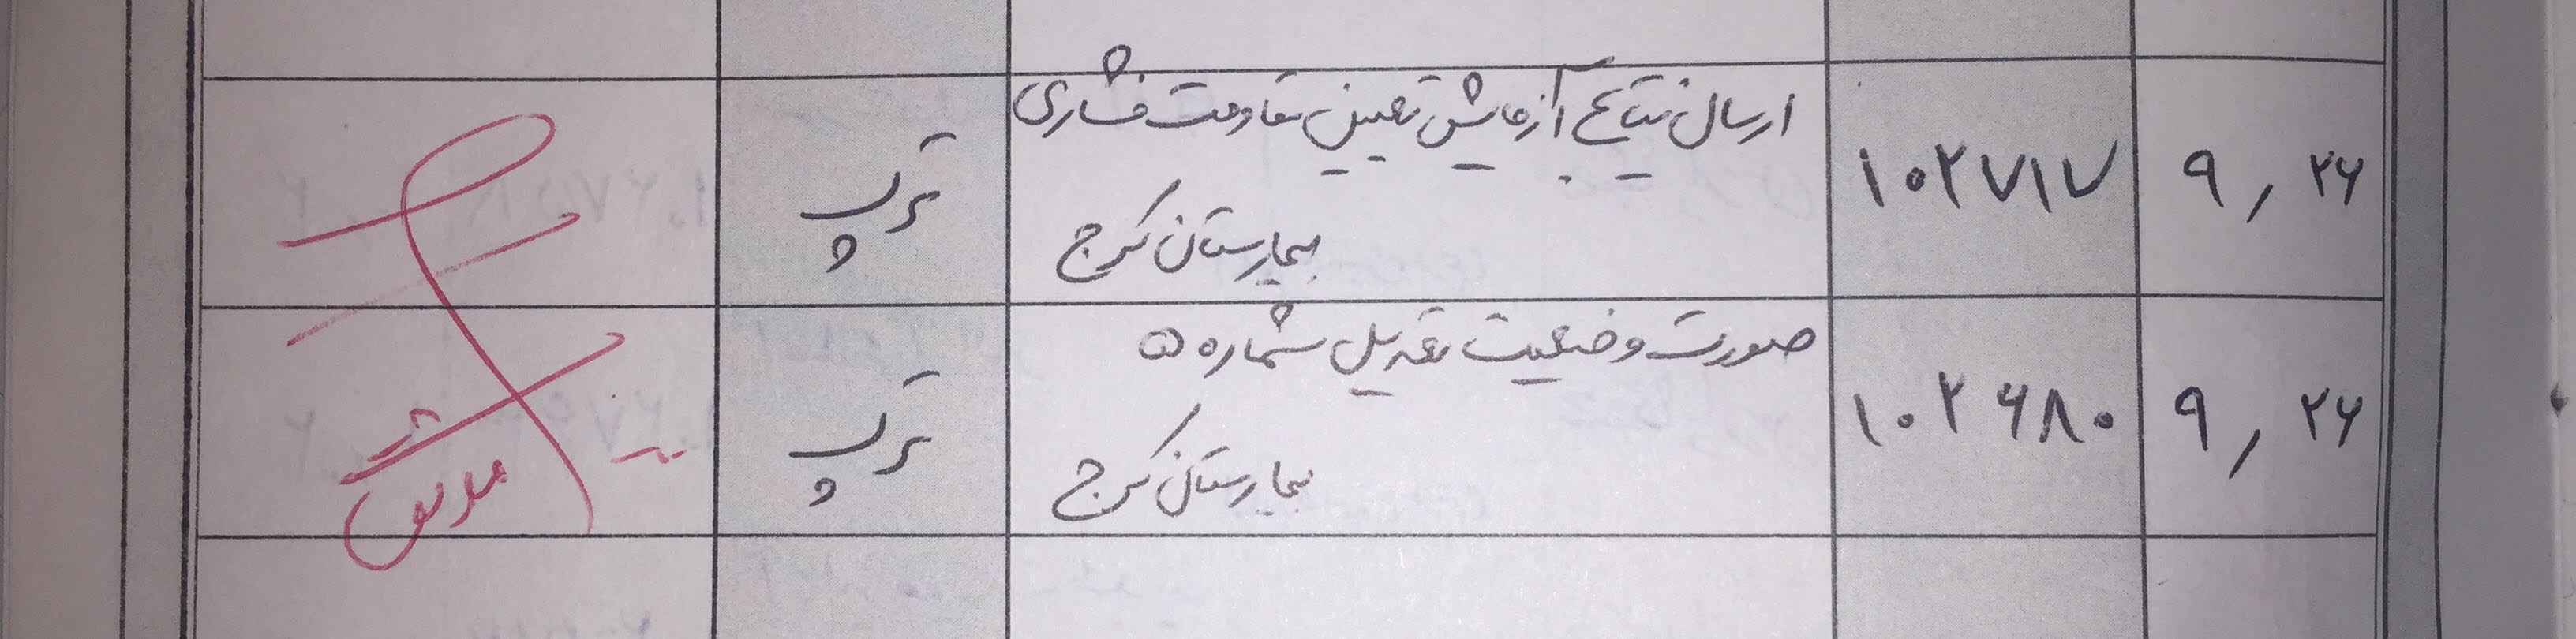 ۹, ۲۶
۱۰۲۷۱۷
ارسال نتایج آزمایش تعیین مقاومت فشاری
بیمارستان کرج
ترپ
۹, ۲۶
۱۰۲۶۸۰
صورت وضعیت تعدیل شماره ۵
بیمارستان کرج
ترپ